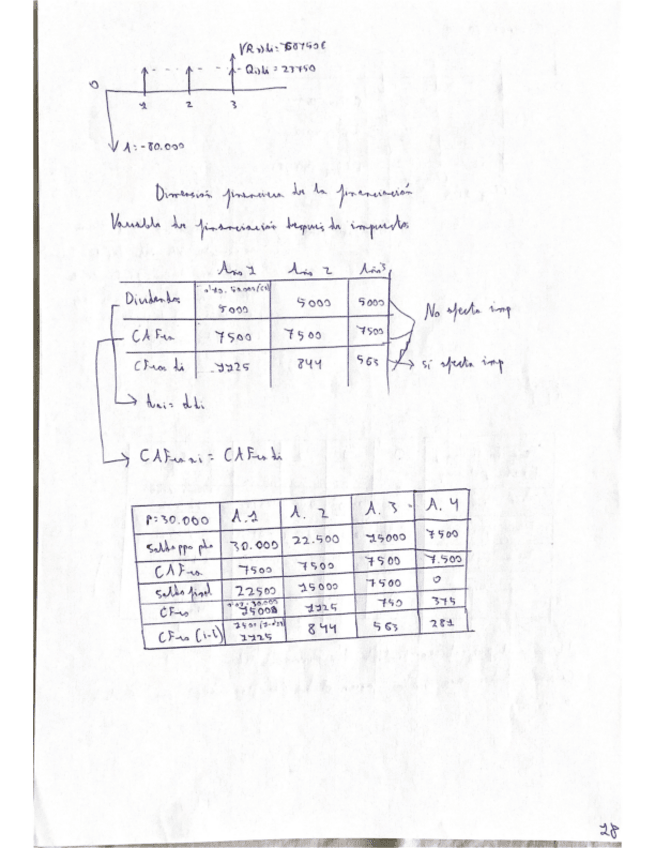 Qdi = 23750
0
1 2 3
A: -80.000
Dimensión financiera de la financiación
Variable de financiación después de impuestos
Año 1 Año 2 Año 3
Dividendos 5000 5000 5000
No afecta imp
CAFro 7500 7500 7500
CFros di 1125 844 563
si afecta imp
CAFro ai = CAFro di
P=30.000 A.1 A. 2 A. 3 A. 4
Saldo ppo 30.000 22.500 15000 7500
CAFro 7500 7500 7500 7.500
Saldo final 22500 15000 7500 0
CFro 1125 750 375
CFro (1-t) 1125 844 563 281
28